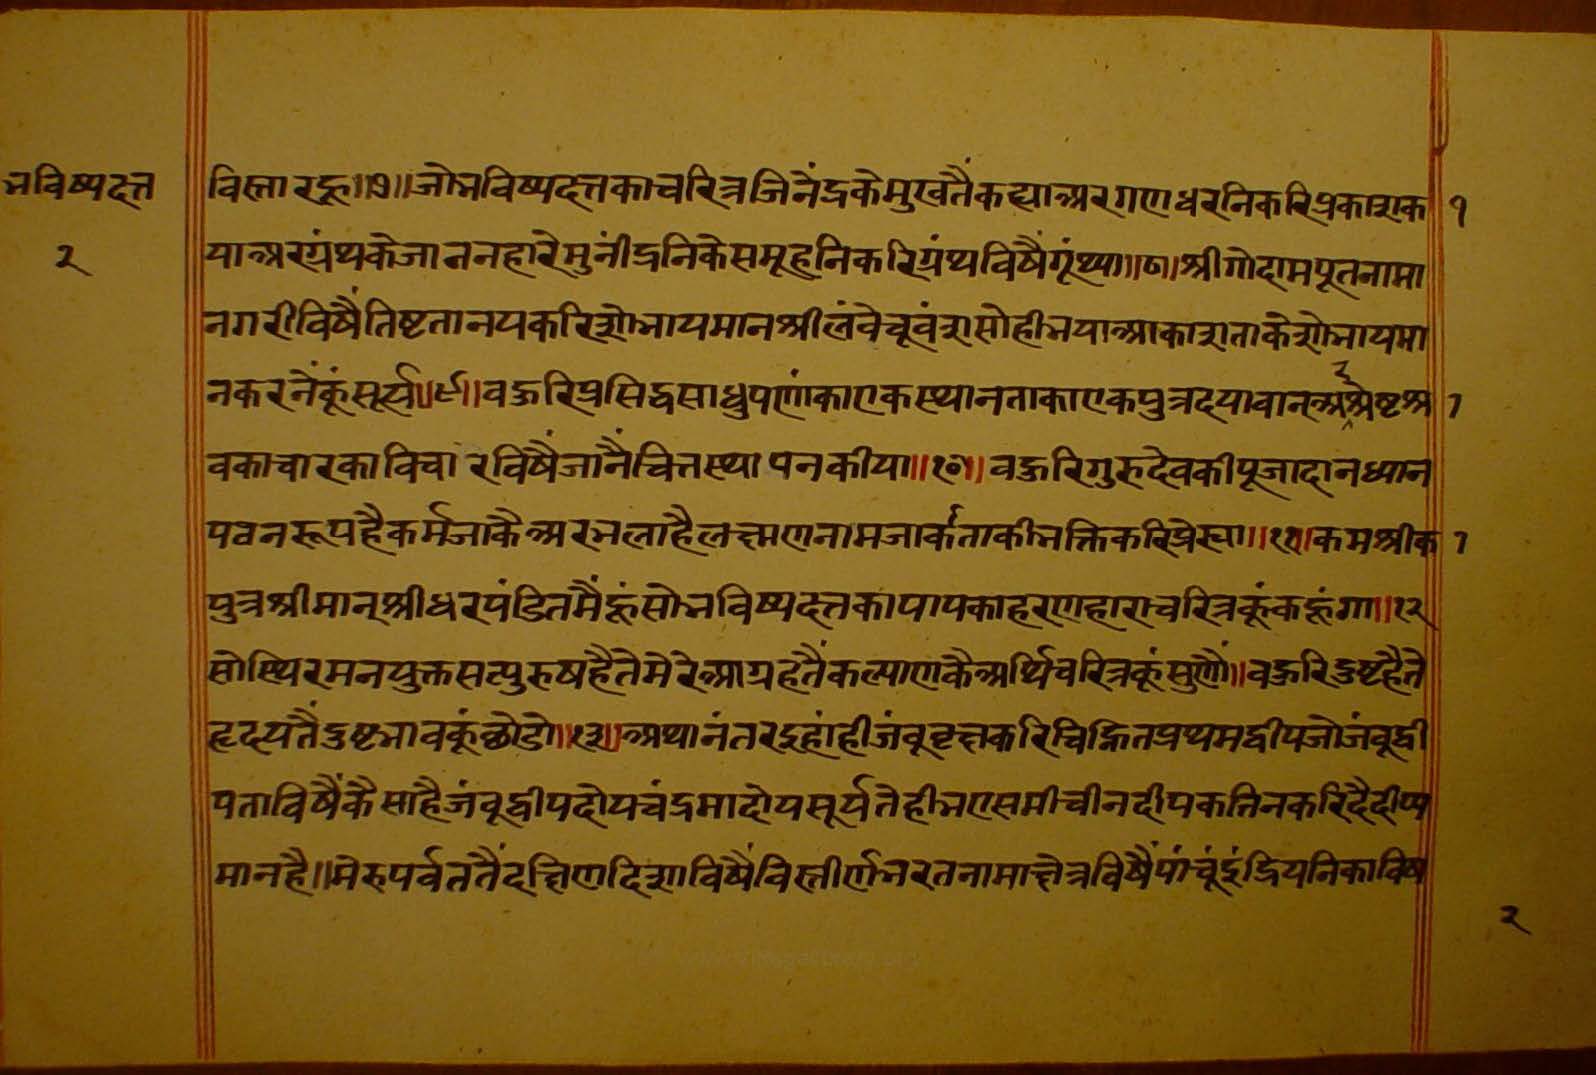 भविष्यदत्त
२
विस्तारहूं॥७॥जोभविष्यदत्तकाचरित्रजिनेंद्रकेमुखतैंकह्याअरगणधरनिकरिप्रकाशक १
याअरग्रंथकेजाननहारेमुनींद्रनिकेसमूहनिकरिग्रंथविषैंगूंथ्या॥८॥श्रीगोदामपूतनामा
नगरीविषैंतिष्टतानयकरिशोभायमानश्रीलंवेचूवंशसोहीभयाआकाशताकेशोभायमा
नकरनेंकूंसूर्य॥९॥वऊरिप्रसिद्धसाधुपणेंकाएकस्थानताकाएकपुत्रदयावानअरश्रेष्टश्र १
वकाचारकाविचारविषैंजानैंचित्तस्थापनकीया॥१०॥वऊरिगुरुदेवकीपूजादानध्यान
पवनरूपहैकर्मजाकैअरभलाहैलक्ष्मणनामजाकैताकीभक्तिकरिप्रेस्या॥११॥कमश्रीक १
पुत्रश्रीमान्श्रीधरपंडितमैंहूंसोभविष्यदत्तकापापकाहरणहाराचरित्रकूंकहूंगा॥१२
सोस्थिरमनयुक्तसत्पुरुषहैतेमेरेआग्रहतैंकल्याणकैअर्थिचरित्रकूंसुणौ॥वऊरिदुष्टहैते
हृदयतैंदुष्टभावकूंछोडो॥१३॥अथानंतरइहांहीजंवुवृक्षकरिचिह्नितप्रथमद्वीपजोजंवूद्वी
पताविषैंकैसाहैजंवूद्वीपदोयचंद्रमादोयसूर्यतेहीभएसमीचीनदीपकतिनकरिदैदीप्य
मानहै॥मेरुपर्वततैंदक्षिणदिशाविषैंविस्तीर्णभरतनामाक्षेत्रविषैंपांचूंइंद्रियनिकाविष
२